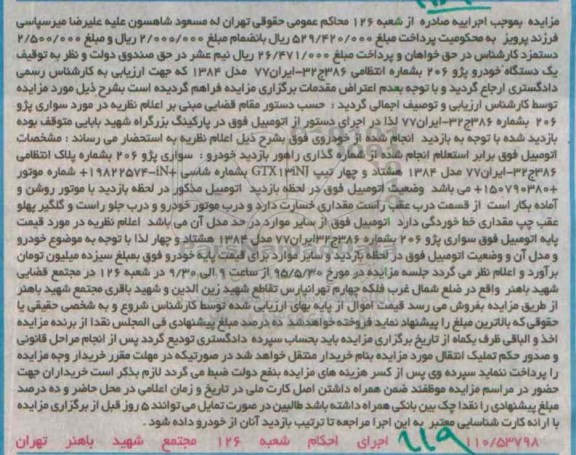 مزایده بموجب اجراییه صادره از شعبه ۱۲۶ محاکم عمومی حقوقی تهران له مسعود شاهسون علیه علیرضا میرسپاسی
فرزند پرویز به محکومیت پرداخت مبلغ ۵۲۹/۴۲۰/۰۰۰ ریال بانضمام مبلغ ۲/۰۰۰/۰۰۰ ریال و مبلغ ۲/۵۰۰/۰۰۰
دستمزد کارشناس در حق خواهان و پرداخت مبلغ ۲۶/۴۷۱/۰۰۰ ریال نیم عشر در حق صندوق دولت و نظر به توقیف
یک دستگاه خودرو پژو ۲۰۶ بشماره انتظامی ۳۸۶ج۳۲-ایران۷۷ مدل ۱۳۸۴ که جهت ارزیابی به کارشناس رسمی
دادگستری ارجاع گردید و با توجه بعدم اعتراض مقدمات برگزاری مزایده فراهم گردیده است بشرح ذیل مورد مزایده
توسط کارشناس ارزیابی و توصیف اجمالی گردید : حسب دستور مقام قضایی مبنی بر اعلام نظریه در مورد سواری پژو
۲۰۶ بشماره ۳۸۶ج۳۲-ایران۷۷ لذا در اجرای دستور از اتومبیل فوق در پارکینگ بزرگراه شهید بابایی متوقف بوده
بازدید شده با توجه به بازدید انجام شده از خودروی فوق بشرح ذیل اعلام نظریه به استحضار می رساند : مشخصات
اتومبیل فوق برابر استعلام انجام شده از شماره گذاری راهور بازدید خودرو : سواری پژو ۲۰۶ بشماره پلاک انتظامی
۳۸۶ج۳۲-ایران۷۷ مدل ۱۳۸۴ هشتاد و چهار تیپ GTX بشماره شاسی ۱۹۸۲۲۵۷۴ شماره موتور
۱۵۰۷۹۰۳۸۰ می باشد وضعیت اتومبیل فوق در لحظه بازدید اتومبیل مذکور در لحظه بازدید با موتور روشن و
آماده بکار است از قسمت درب عقب راست مقداری خسارت دارد و درب موتور خودرو و درب جلو راست و گلگیر پهلو
عقب چپ مقداری خط خوردگی دارد اتومبیل فوق از سایر موارد در حد مدل آن می باشد اعلام نظریه در مورد قیمت
پایه اتومبیل فوق سواری پژو ۲۰۶ بشماره ۳۸۶ج۳۲ایران۷۷ مدل ۱۳۸۴ هشتاد و چهار لذا با توجه به موضوع خودرو
و مدل آن و وضعیت اتومبیل فوق در لحظه بازدید و سایر موارد برای قیمت پایه خودرو فوق بمبلغ سیزده میلیون تومان
برآورد و اعلام نظر می گردد جلسه مزایده در مورخ ۹۵/۵/۳۰ از ساعت ۹ الی ۹/۳۰ در شعبه ۱۲۶ در مجتمع قضایی
شهید باهنر واقع در ضلع شمال غرب فلکه چهارم تهرانپارس تقاطع شهید زین الدین و شهید باقری مجتمع شهید باهنر
از طریق مزایده بفروش می رسد قیمت اموال از پایه بهای ارزیابی شده توسط کارشناس شروع و به شخصی حقیقی یا
حقوقی که بالاترین مبلغ را پیشنهاد نماید فروخته خواهد شد ده درصد مبلغ پیشنهادی فی المجلس نقدا از برنده مزایده
اخذ و الباقی ظرف یکماه از تاریخ برگزاری مزایده باید بحساب سپرده دادگستری تودیع گردد پس از انجام مراحل قانونی
و صدور حکم تملیک انتقال مورد مزایده بنام خریدار منتقل خواهد شد در صورتیکه در مهلت مقرر خریدار وجه مزایده
را پرداخت ننماید سپرده وی پس از کسر هزینه های مزایده بنفع دولت ضبط می گردد لازم بذکر است خریداران جهت
حضور در مراسم مزایده موظفند ضمن همراه داشتن اصل کارت ملی در تاریخ و زمان اعلامی در محل حاضر و ده درصد
مبلغ پیشنهادی را نقدا چک بین بانکی همراه داشته باشد طالبین در صورت تمایل می توانند ۵ روز قبل از برگزاری مزایده
با ارائه کارت شناسایی معتبر به این اجرا مراجعه تا ترتیب بازدید آنان از خودرو داده شود .
۱۱۰/۵۳۷۹۸ اجرای احکام شعبه ۱۲۶ مجتمع شهید باهنر تهران